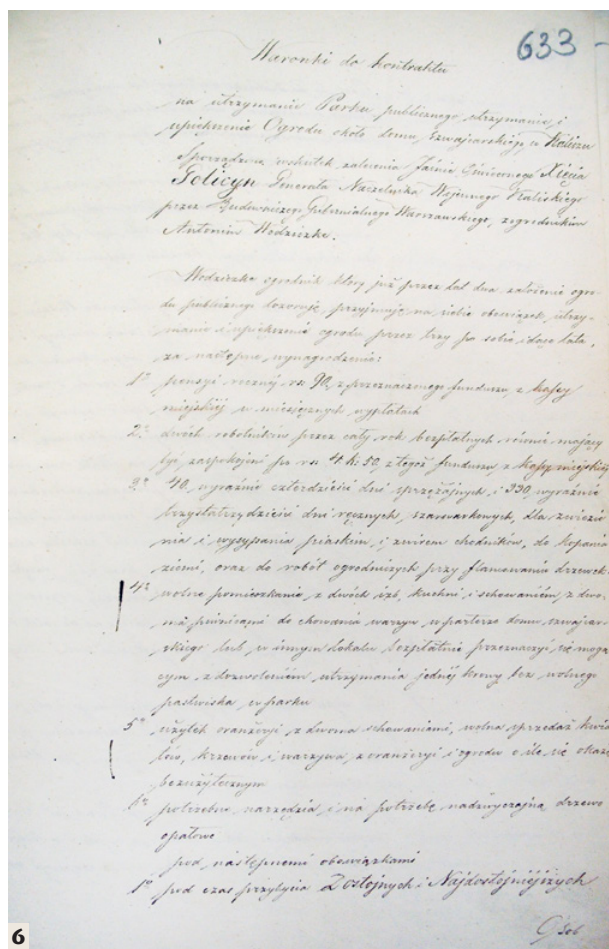 633 -
Warunki do kontraktu
na utrzymanie Parku publicznego utrzymanie i
upiększenie Ogrodu około domu szwajcarskiego, w Kaliszu
Sporządzone wskutek zalecenia Jaśnie Oświeconego Xięcia
Golicyn Generała Naczelnika Wojennego Kaliskiego
przez Budowniczego Gubernialnego Warszawskiego, z ogrodnikiem
Antonim Wodziczke.
Wodziczke ogrodnik który już przez lat dwa założenie ogro-
du publicznego dozoruje, przyjmuje na siebie obowiązek utrzy-
mania i upiększenia ogrodu przez trzy po sobie idące lata,
za następne wynagrodzenie:
1º pensyi rocznej rs 90, z przeznaczonego funduszu z kassy
miejskiej w miesięcznych wypłatach
2º dwóch robotników przez cały rok bezpłatnych równie mający
być zaspokojeni po rs 4 k: 50, z tegoż funduszu z kassy miejskiej
3º 40, wyraźnie czterdzieści dni sprzężajnych, i 330, wyraźnie
trzystatrzydzieści dni ręcznych, szarwarkowych, dla zwiezie-
nia i wysypania piaskiem, i żwirem chodników, do kopania
ziemi, oraz do robót ogrodniczych przy flancowaniu drzewek.
4º wolne pomieszkanie z dwóch izb, kuchni, i schowaniem, z dwo-
ma piwnicami do chowania warzyw, w parterze domu szwajcar-
skiego lub w innym lokalu bezpłatnie przeznaczyć się mogą-
cym, z dozwoleniem utrzymania jednej krowy bez wolnego
pastwiska w parku
5º użytek oranżeryi z dwoma schowaniami, wolna sprzedaż kwia-
tów, krzewów i warzywa, z oranżeryi i ogrodu o ile się okażą
bezużytecznym
6º potrzebne narzędzia i na potrzebę nadzwyczajną drzewo
opałowe
pod następnemi obowiązkami
1º pod czas przybycia Dostojnych i Najdostojniejszych
Osób
6